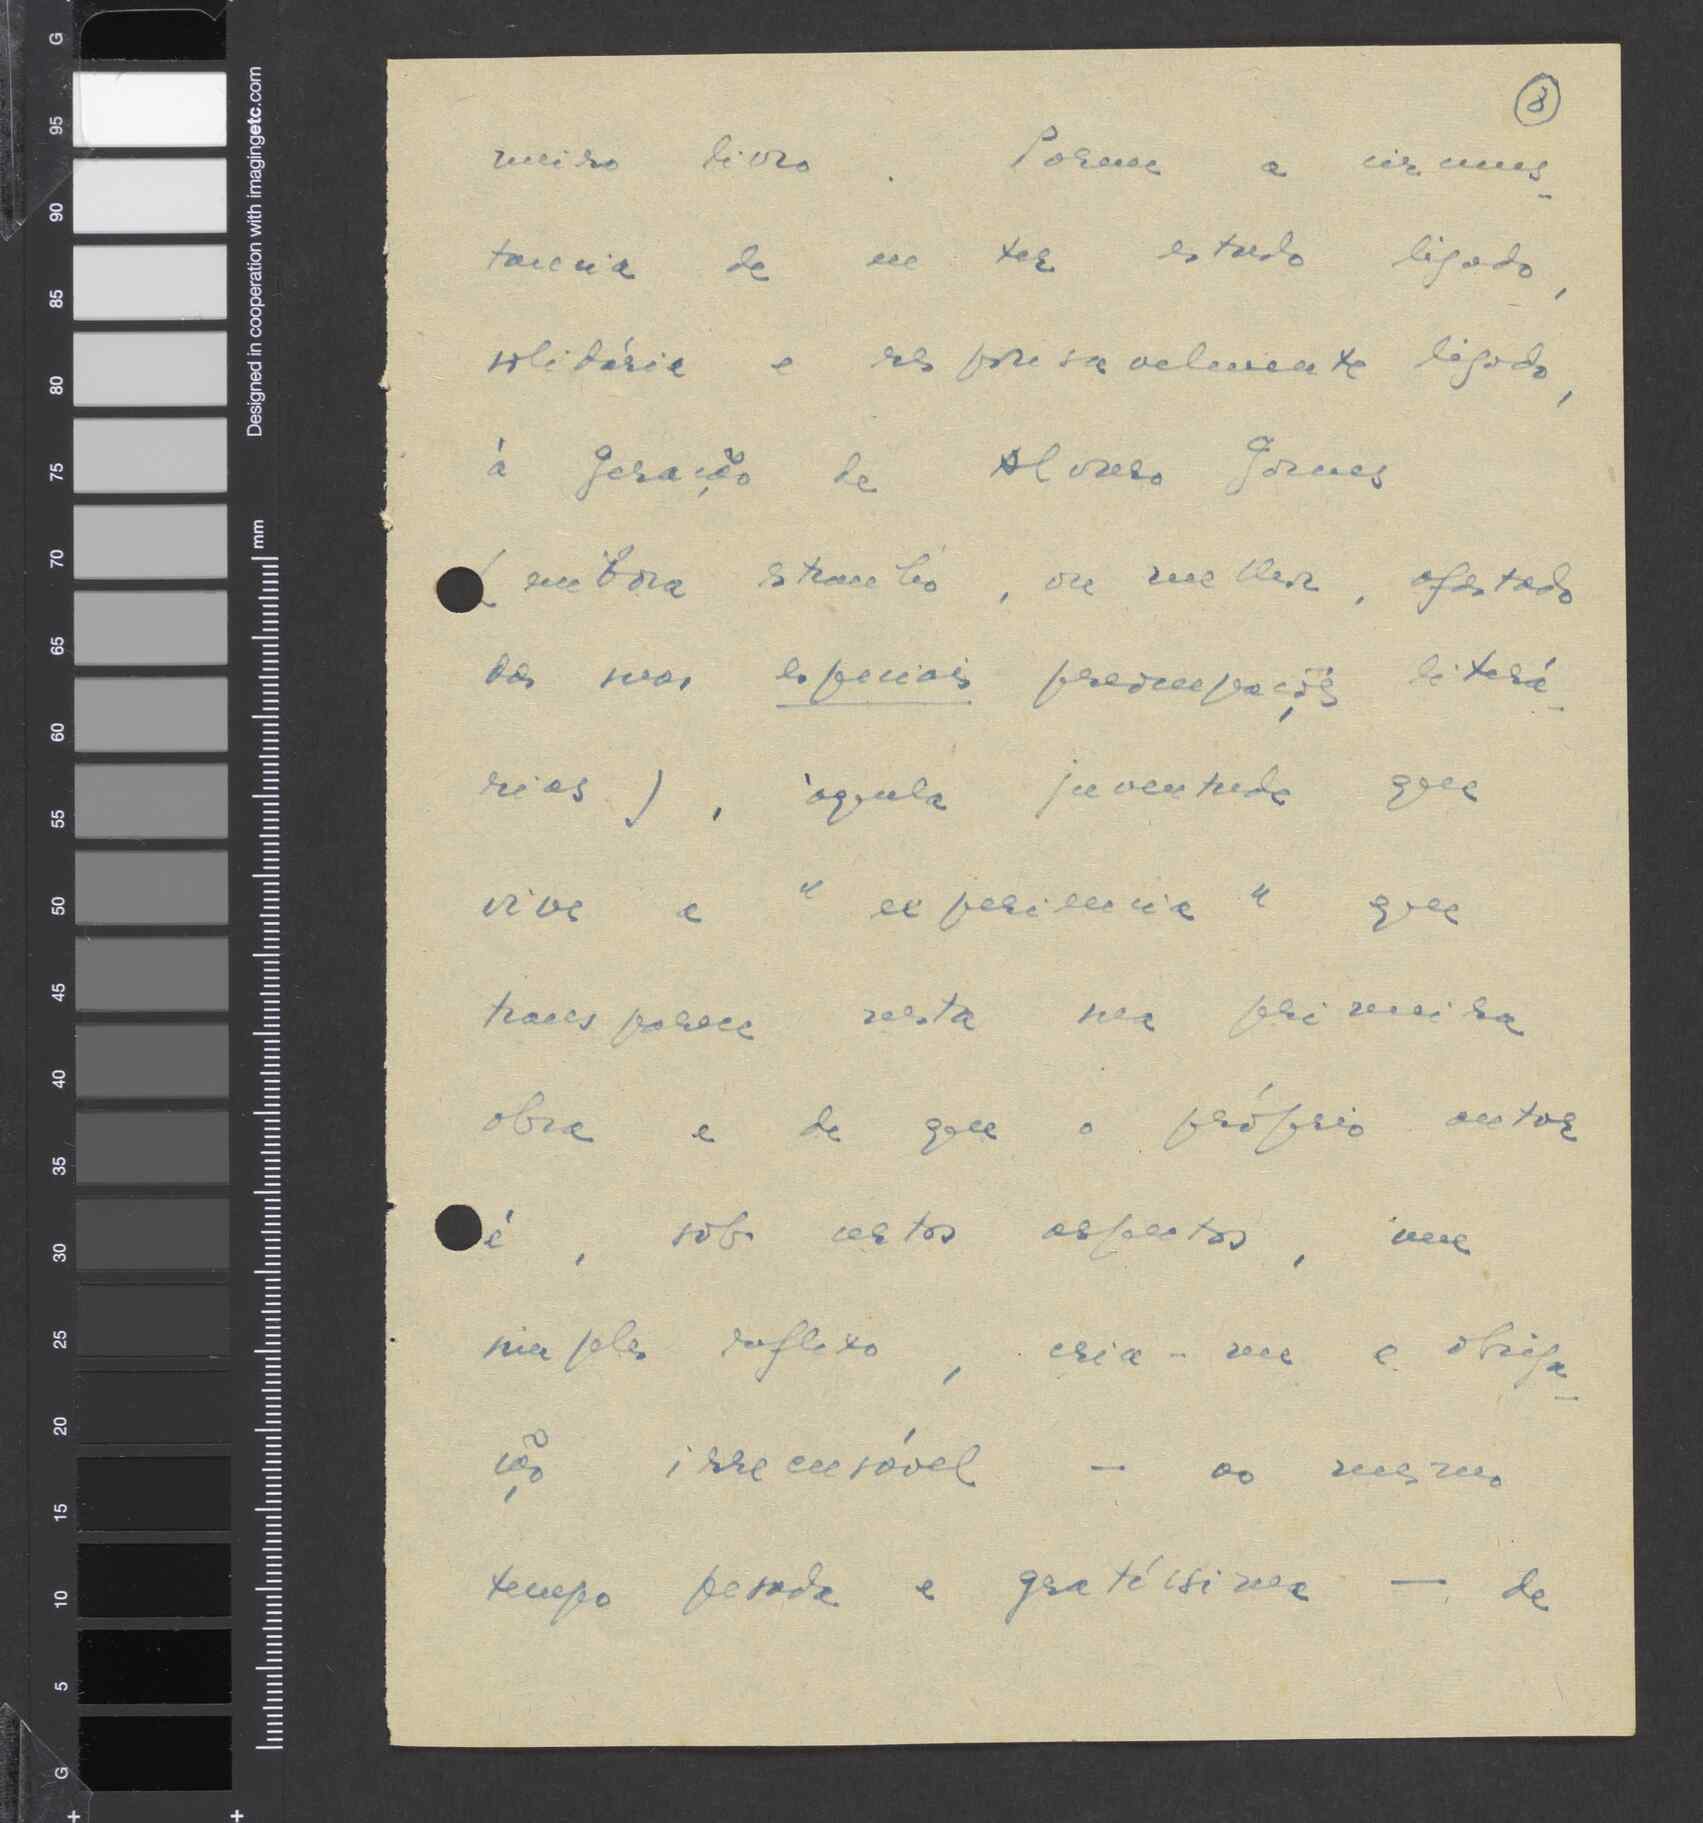 8
meiro livro. Porque a circuns-
tancia de eu ter estado ligado,
solidária e responsavelmente ligado,
à Geração de Alvaro Gomes
(embora estranho, ou melhor, afastado
das suas especiais preocupações literá-
rias), àquela juventude que
vive a "experiencia" que
transparece nesta sua primeira
obra e de que o próprio autor
é, sob certos aspectos, um
simples reflexo, cria-me a obriga-
ção irrecusável — ao mesmo
tempo pesada e gratíssima — de
G
95
90
85
80
75
70
65
60
55
50
45
40
35
30
25
20
15
10
5
G
Designed in cooperation with imagingetc.com
mm